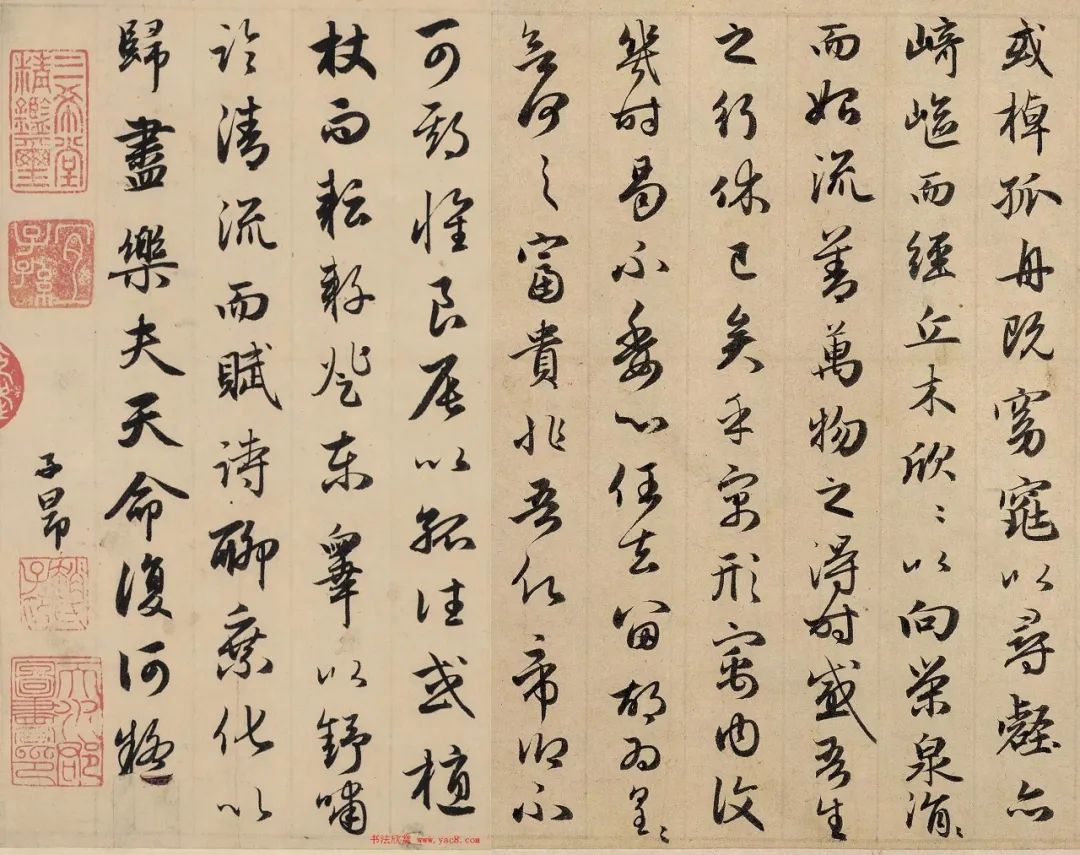 或棹孤舟既窈窕以尋壑亦
崎嶇而經丘木欣〻以向榮泉涓〻
而始流善萬物之得時感吾生
之行休已矣乎寓形寓內復
幾時曷不委心任去留胡為皇〻
欲何之富貴非吾願帝鄉不
可期懷良辰以孤往或植
杖而耘耔登東皋以舒嘯
臨清流而賦詩聊乘化以
歸盡樂夫天命復何疑
子昂
三希堂精鑑璽
宜子孫
趙氏子昂
书法欣赏 www.yac8.com